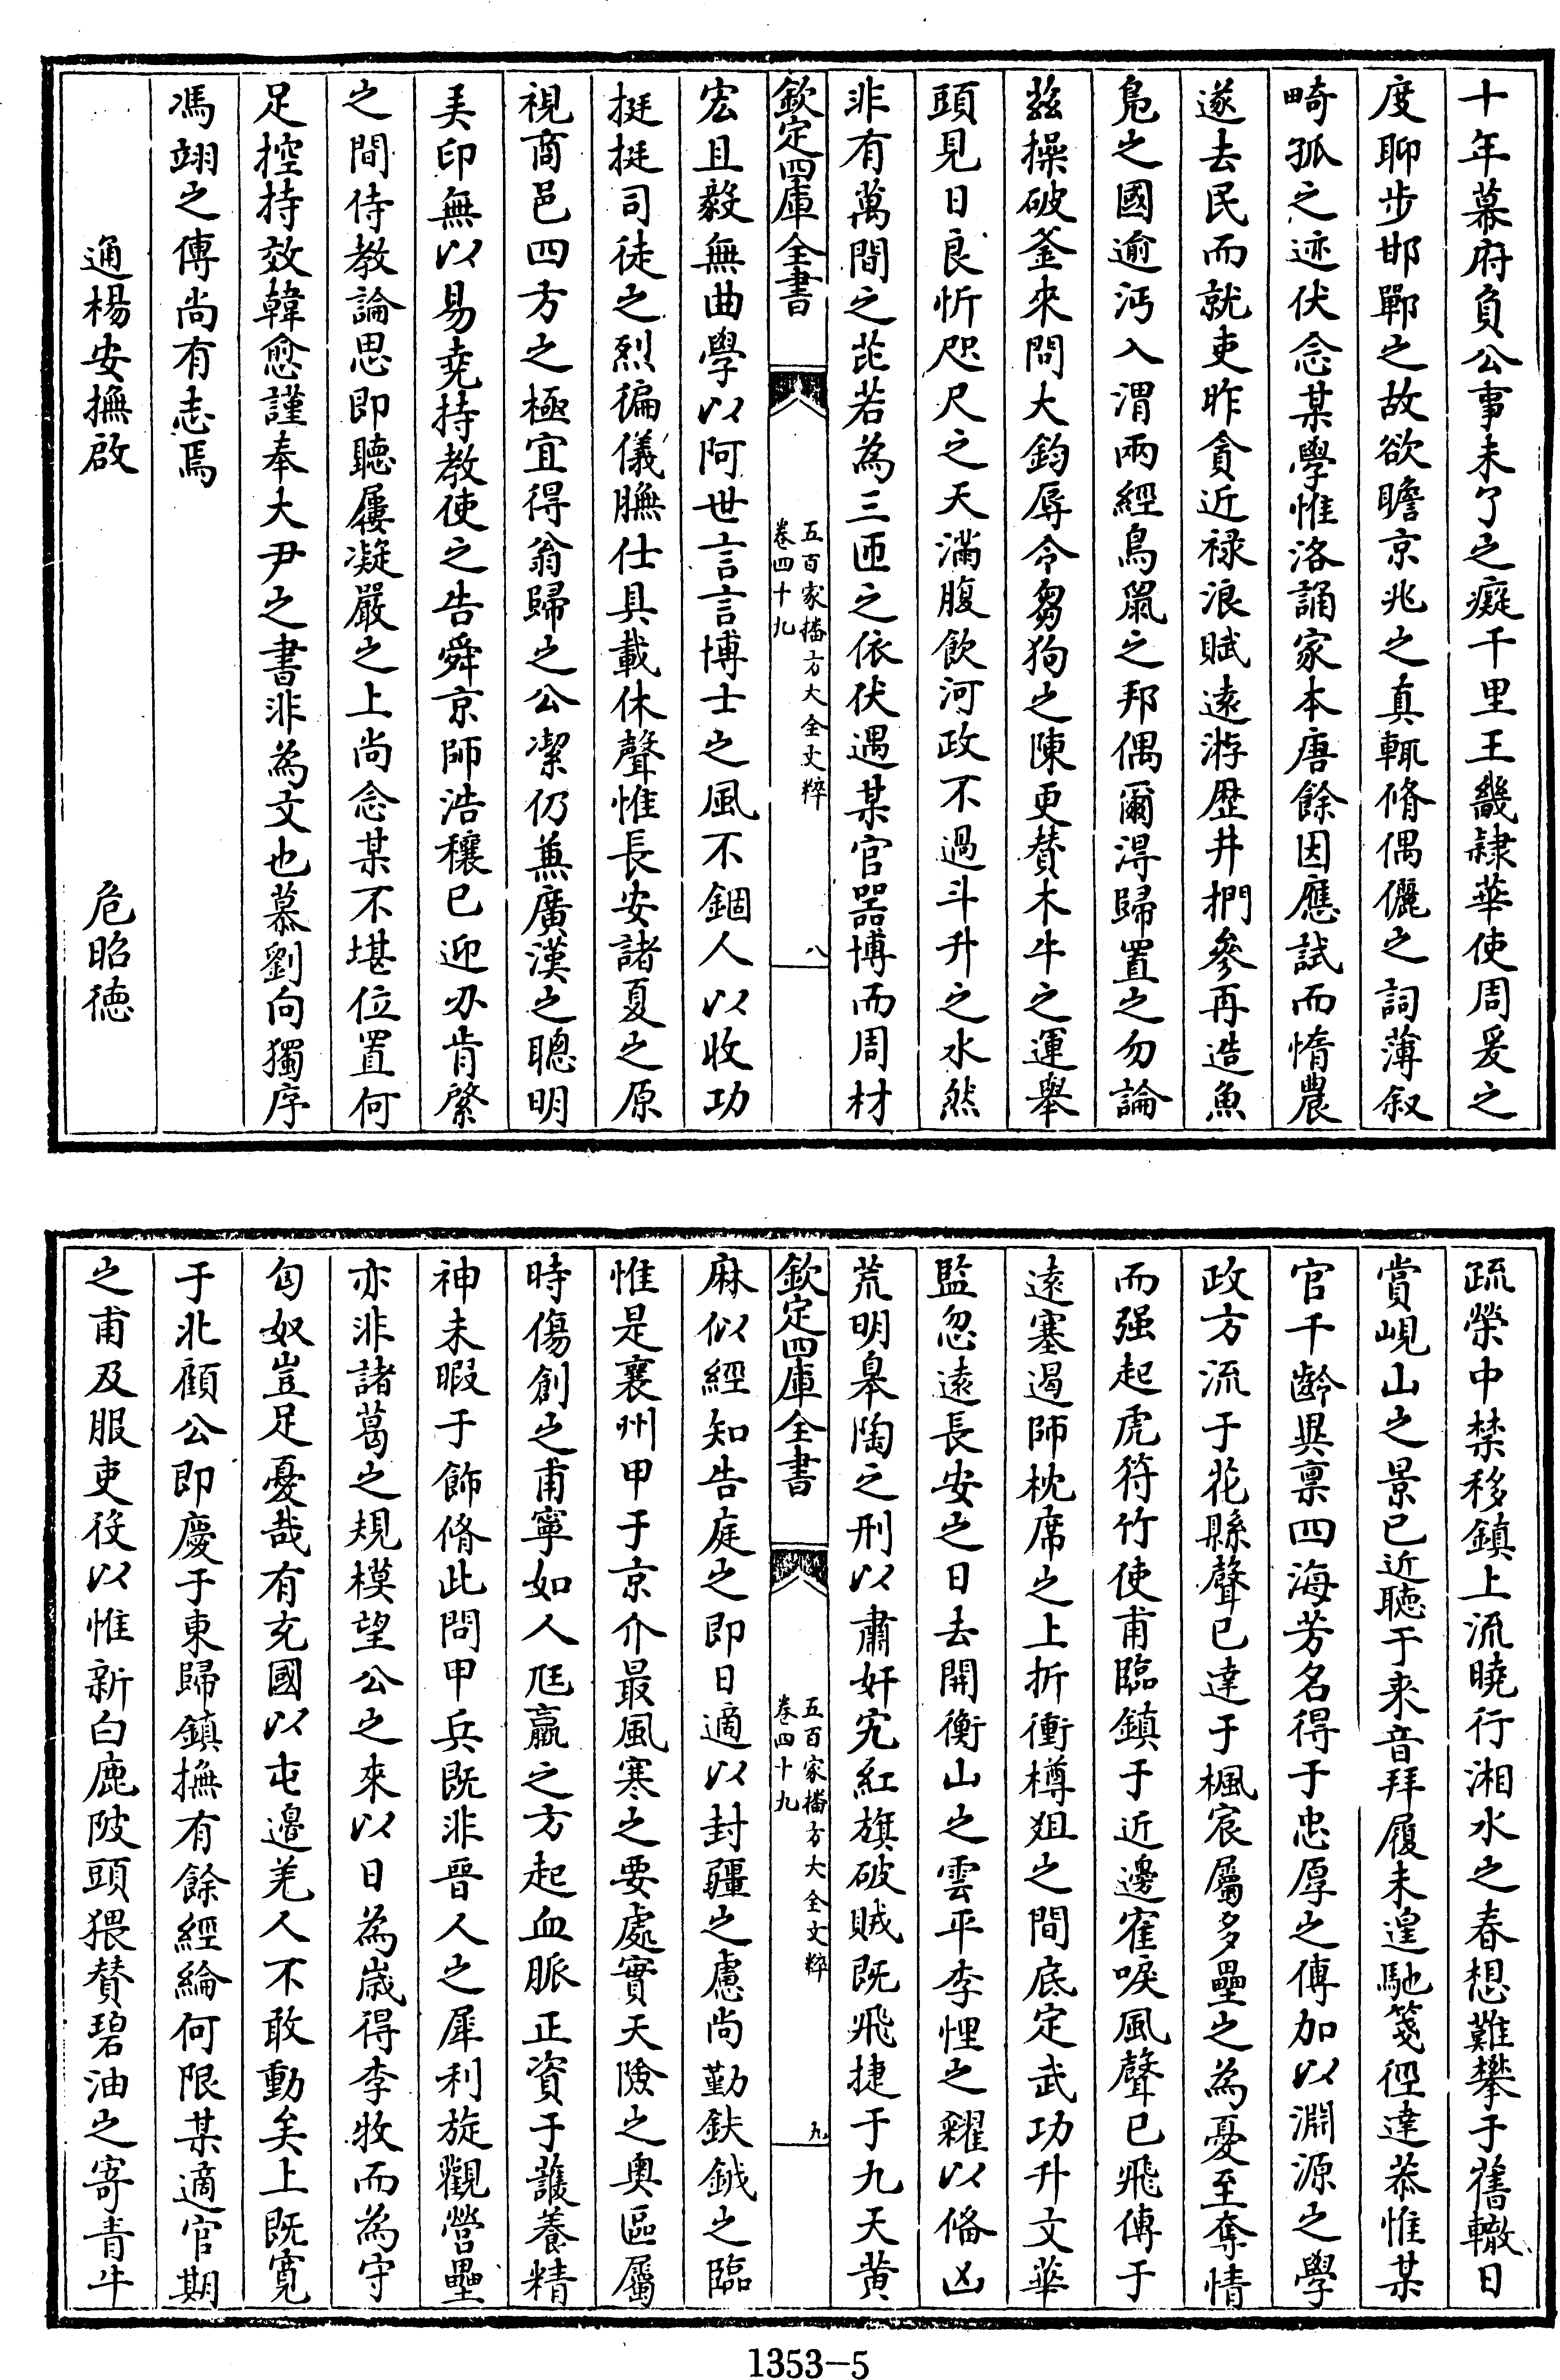 十年幕府負公事未了之癡千里王畿隷華使周爰之
度聊步邯鄲之故欲瞻京兆之真輒脩偶儷之詞薄叙
畸孤之迹伏念某學惟洛誦家本唐餘因應試而惰農
遂去民而就吏昨貪近禄浪賦遠游歴井捫參再造魚
鳬之國逾沔入渭兩經鳥䑕之邦偶爾得歸置之勿論
兹操破釜來問大鈞辱令芻狗之陳更賛木牛之運舉
頭見日良忻咫尺之天滿腹飲河政不過斗升之水然
非有萬間之芘若為三匝之依伏遇某官器博而周材
欽定四庫全書
五百家播芳大全文粹
卷四十九
八
宏且毅無曲學以阿世言言博士之風不錮人以收功
挺挺司徒之烈徧儀膴仕具載休聲惟長安諸夏之原
視商邑四方之極宜得翁歸之公潔仍兼廣漢之聰明
美印無以易堯持教使之告舜京師浩穰已迎刃肯綮
之間侍教論思即聽屨凝嚴之上尚念某不堪位置何
足控持效韓愈謹奉大尹之書非為文也慕劉向獨序
馮翊之傳尚有志焉
通楊安撫啟
危昭德
疏榮中禁移鎮上流曉行湘水之春想難攀于舊轍日
賞峴山之景已近聽于來音拜履未遑馳箋徑達恭惟某
官千齡異禀四海芳名得于忠厚之傳加以淵源之學
政方流于花縣聲已達于楓宸屬多壘之為憂至奪情
而强起虎符竹使甫臨鎮于近邊寉唳風聲已飛傳于
遠塞遏師枕席之上折衝樽俎之間底定武功升文華
監忽遠長安之日去開衡山之雲平李悝之糴以偹凶
荒明皋陶之刑以肅奸宄紅旗破賊既飛捷于九天黄
欽定四庫全書
五百家播芳大全文粹
卷四十九
九
麻似經知告庭之即日適以封疆之慮尚勤鈇鉞之臨
惟是襄州甲于京介最風寒之要處實天險之奥區屬
時傷創之甫寧如人尫羸之方起血脈正資于護養精
神未暇于飾脩此問甲兵既非晋人之犀利旋觀營壘
亦非諸葛之規模望公之來以日為歳得李牧而為守
匈奴豈足憂哉有充國以屯邉羌人不敢動矣上既寛
于北顧公即慶于東歸鎮撫有餘經綸何限某適官期
之甫及服吏役以惟新白鹿陂頭猥賛碧油之寄青牛
1353-5